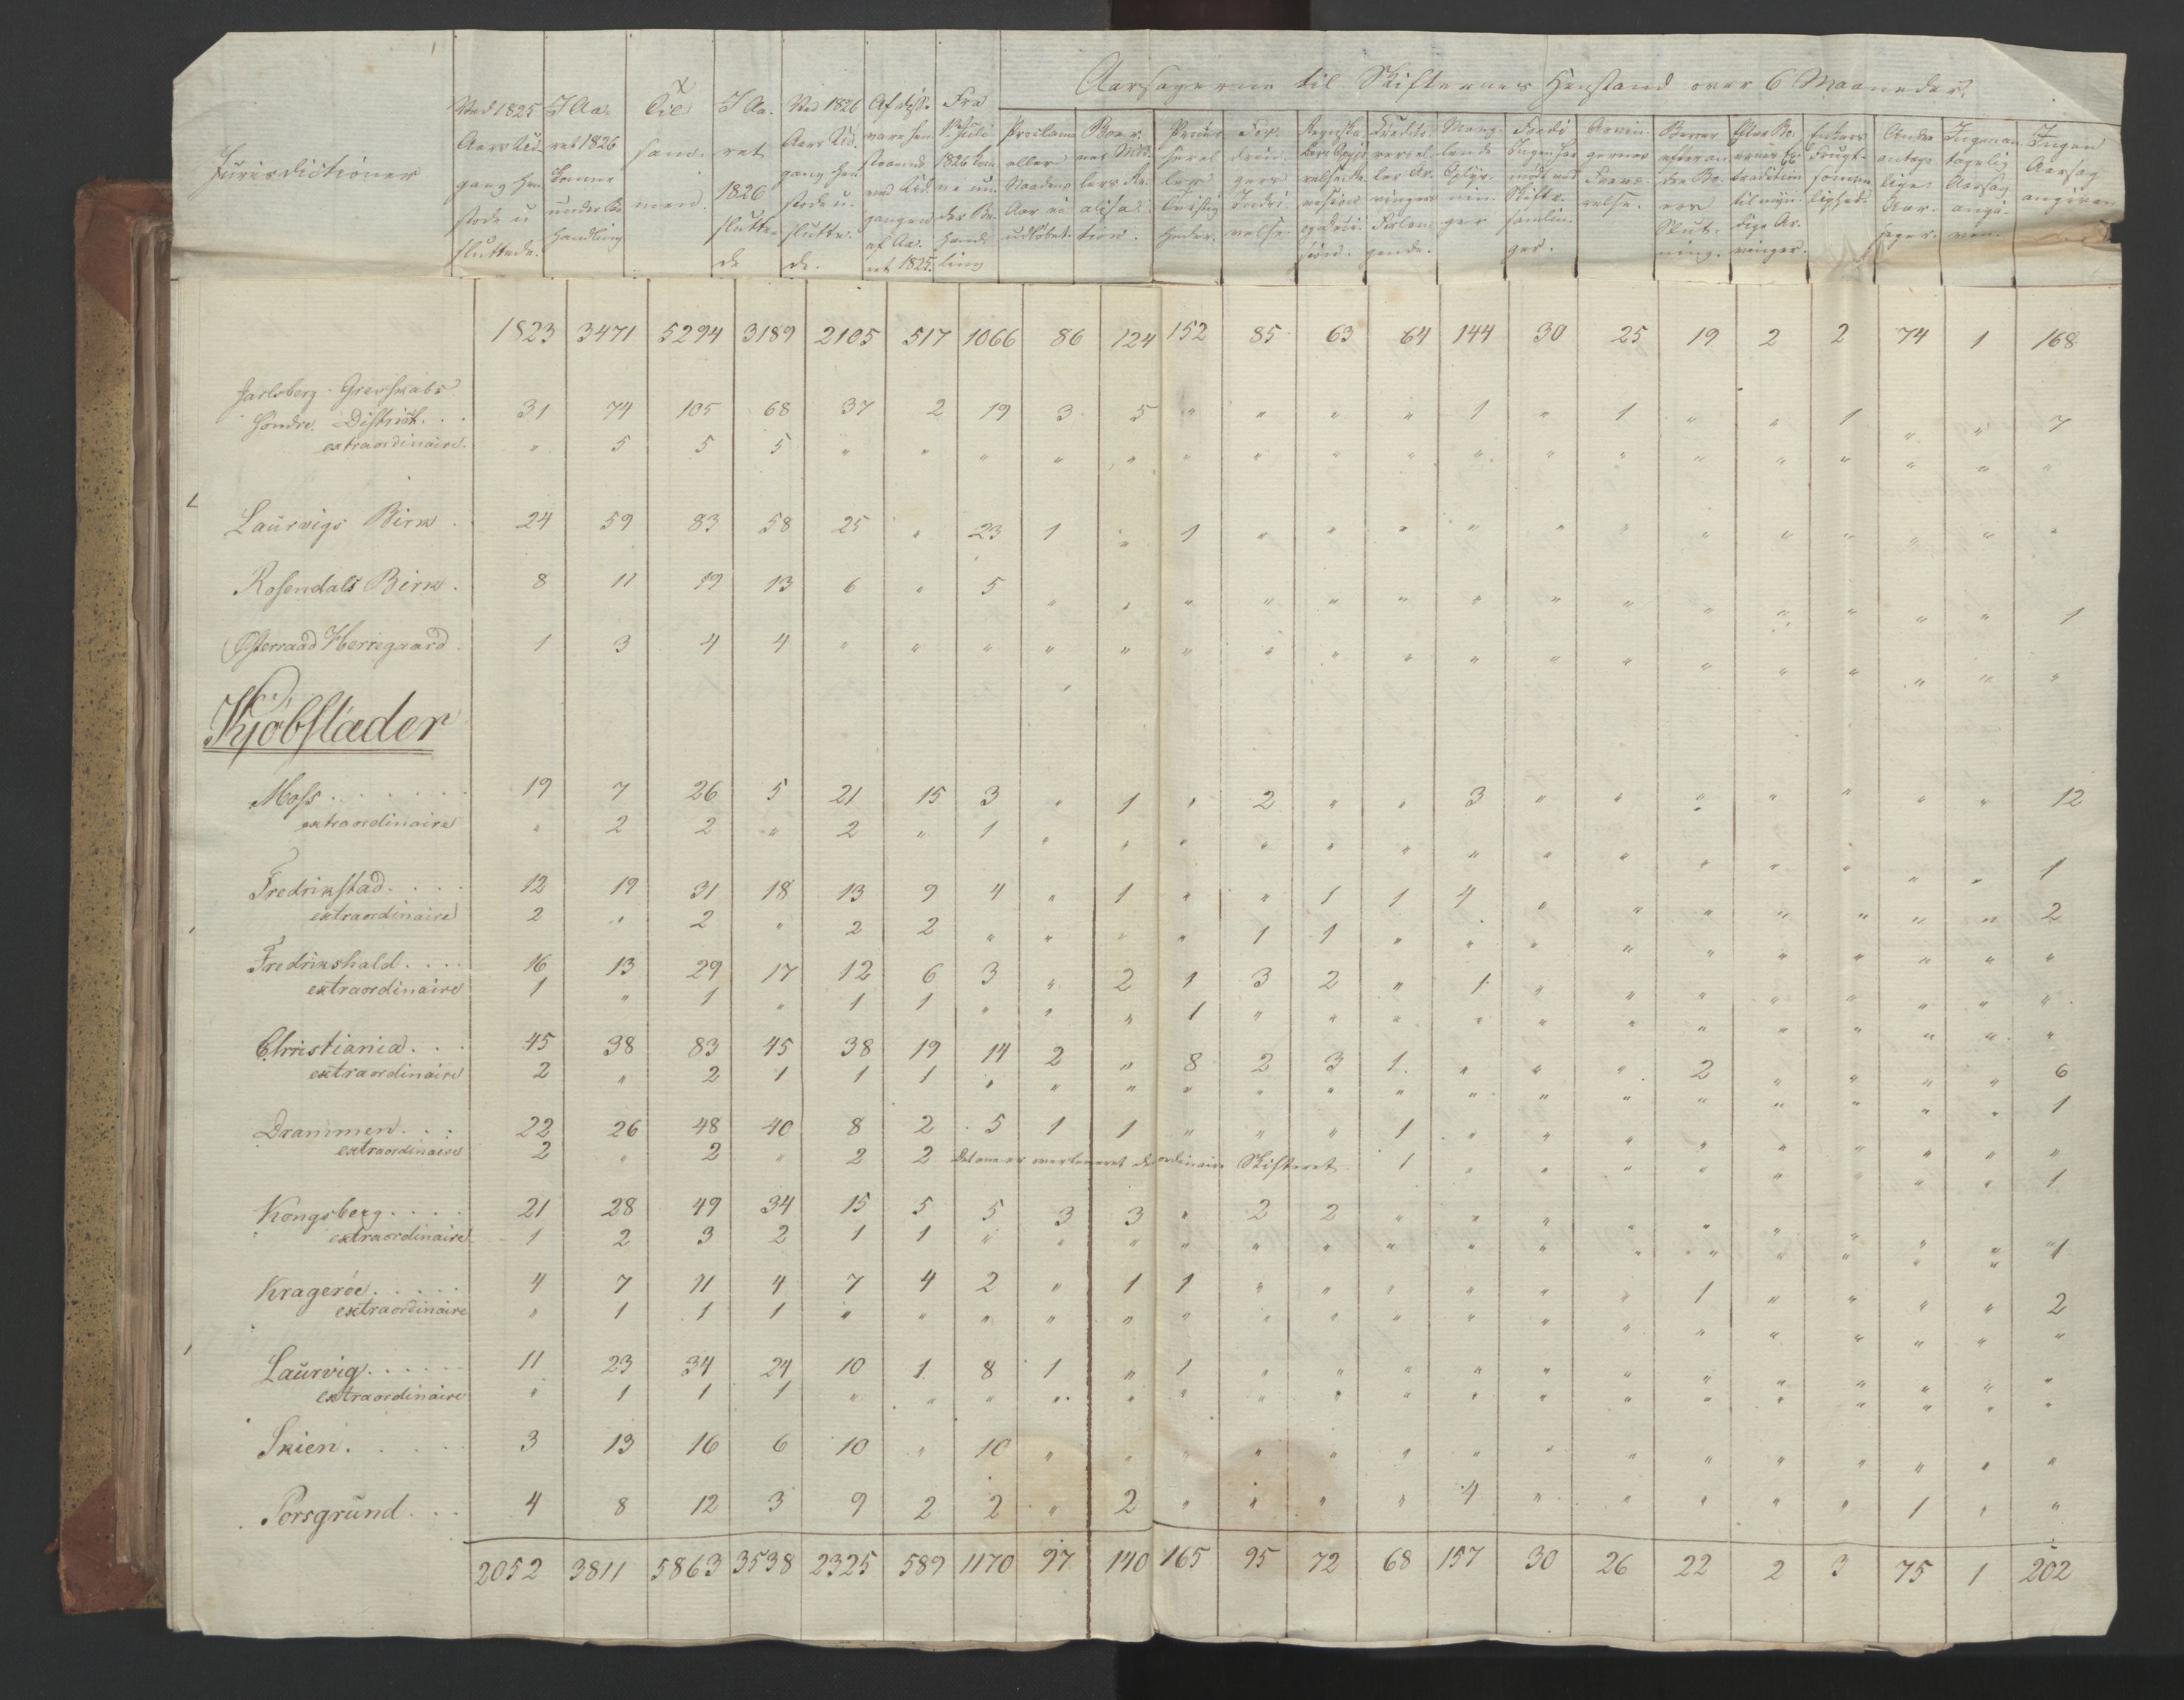 Aarsagerne til Skifternes Henstand over 6 Maaneder.
Jurisdictioner
Ved 1825 Aars Udgang henstode usluttede.
I Aaret 1826 komne under Behandling
Tilsammen.
I Aaret 1826 sluttede
Ved 1826 Aars Udgang henstode usluttede.
Af disse vare henstaaende ved Udgangen af Aaret 1825.
Fra 1ste Juli 1826 komne under Behandling
Proclama eller Naadens Aar ei udløbet.
Boernes Midlers Realisation.
Processer eller Tvistigheder.
Fordringers Inddrivelse.
Mang- lende Oplysninger
Arvingernes Fraværelse.
Enkers Frugtsommelighed.
Andre antagelige Aarsager.
Ingen antagelig Aarsag angiven.
Ingen Aarsag angiven
1823 3471 5294 3189 2105 517 1066 86 124 152 85 63 64 144 30 25 19 2 2 74 1 168
Jarlsberg Grevskabs
Søndre District. . . 31 74 105 68 37 2 19 3 5 " " " " 1 " 1 " " 1 " " 7
extraordinaire. " 5 5 5 " " " " " " " " " " " " " " " " " "
Laurvigs Birk . 24 59 83 58 25 " 23 1 " 1 " " " " " " " " " " " "
Rosendals Birk . 8 11 19 13 6 " 5 " " " " " " " " " " " " " " 1
Østerraad Herregaard . 1 3 4 4 " " " " " " " " " " " " " " " " " "
Kjøbstæder
Moss . . . . . . 19 7 26 5 21 15 3 " 1 " 2 " " 3 " " " " " " " 12
extraordinaire " 2 2 " 2 " 1 " " " " " " " " " " " " " " 1
Fredrikstad. . . . 12 19 31 18 13 9 4 " 1 " " 1 1 4 " " " " " " " 2
extraordinaire 2 " 2 " 2 2 " " " " 1 1 " " " " " " " " " "
Fredrikshald. . . . 16 13 29 17 12 6 3 " 2 1 3 2 " 1 " " " " " " " "
extraordinaire 1 " 1 " 1 1 " " " 1 " " " " " " " " " " " "
Christiania. . . 45 38 83 45 38 19 14 2 " 8 2 3 1 " " " 2 " " " " 6
extraordinaire 2 " 2 1 1 1 " " " " " " " " " " " " " " " 1
Drammen. . . 22 26 48 40 8 2 5 1 1 " " " 1 " " " " " " " " "
extraordinaire 2 " 2 " 2 2 Det ene er overleveret den ordinaire Skifteret. 1 " " " " " " " " 1
Kongsberg. . . . 21 28 49 34 15 5 5 3 3 " 2 2 " " " " " " " " " "
extraordinaire 1 2 3 2 1 1 " " " " " " " " " " " " " " " 1
Kragerøe. . . . . 4 7 11 4 7 4 2 " 1 1 " " " " " " 1 " " " " 2
extraordinaire " 1 1 1 " " " " " " " " " " " " " " " " " "
Laurvig. . . . . 11 23 34 24 10 1 8 1 " 1 " " " " " " " " " " " "
extraordinaire " 1 1 1 " " " " " " " " " " " " " " " " " "
Skien. . . . 3 13 16 6 10 " 10 " " " " " " " " " " " " " " "
Porsgrund. . . 4 8 12 3 9 2 2 " 2 " " " " 4 " " " " " 1 " "
2052 3811 5863 3538 2325 589 1170 97 140 165 95 72 68 157 30 26 22 2 3 75 1 202